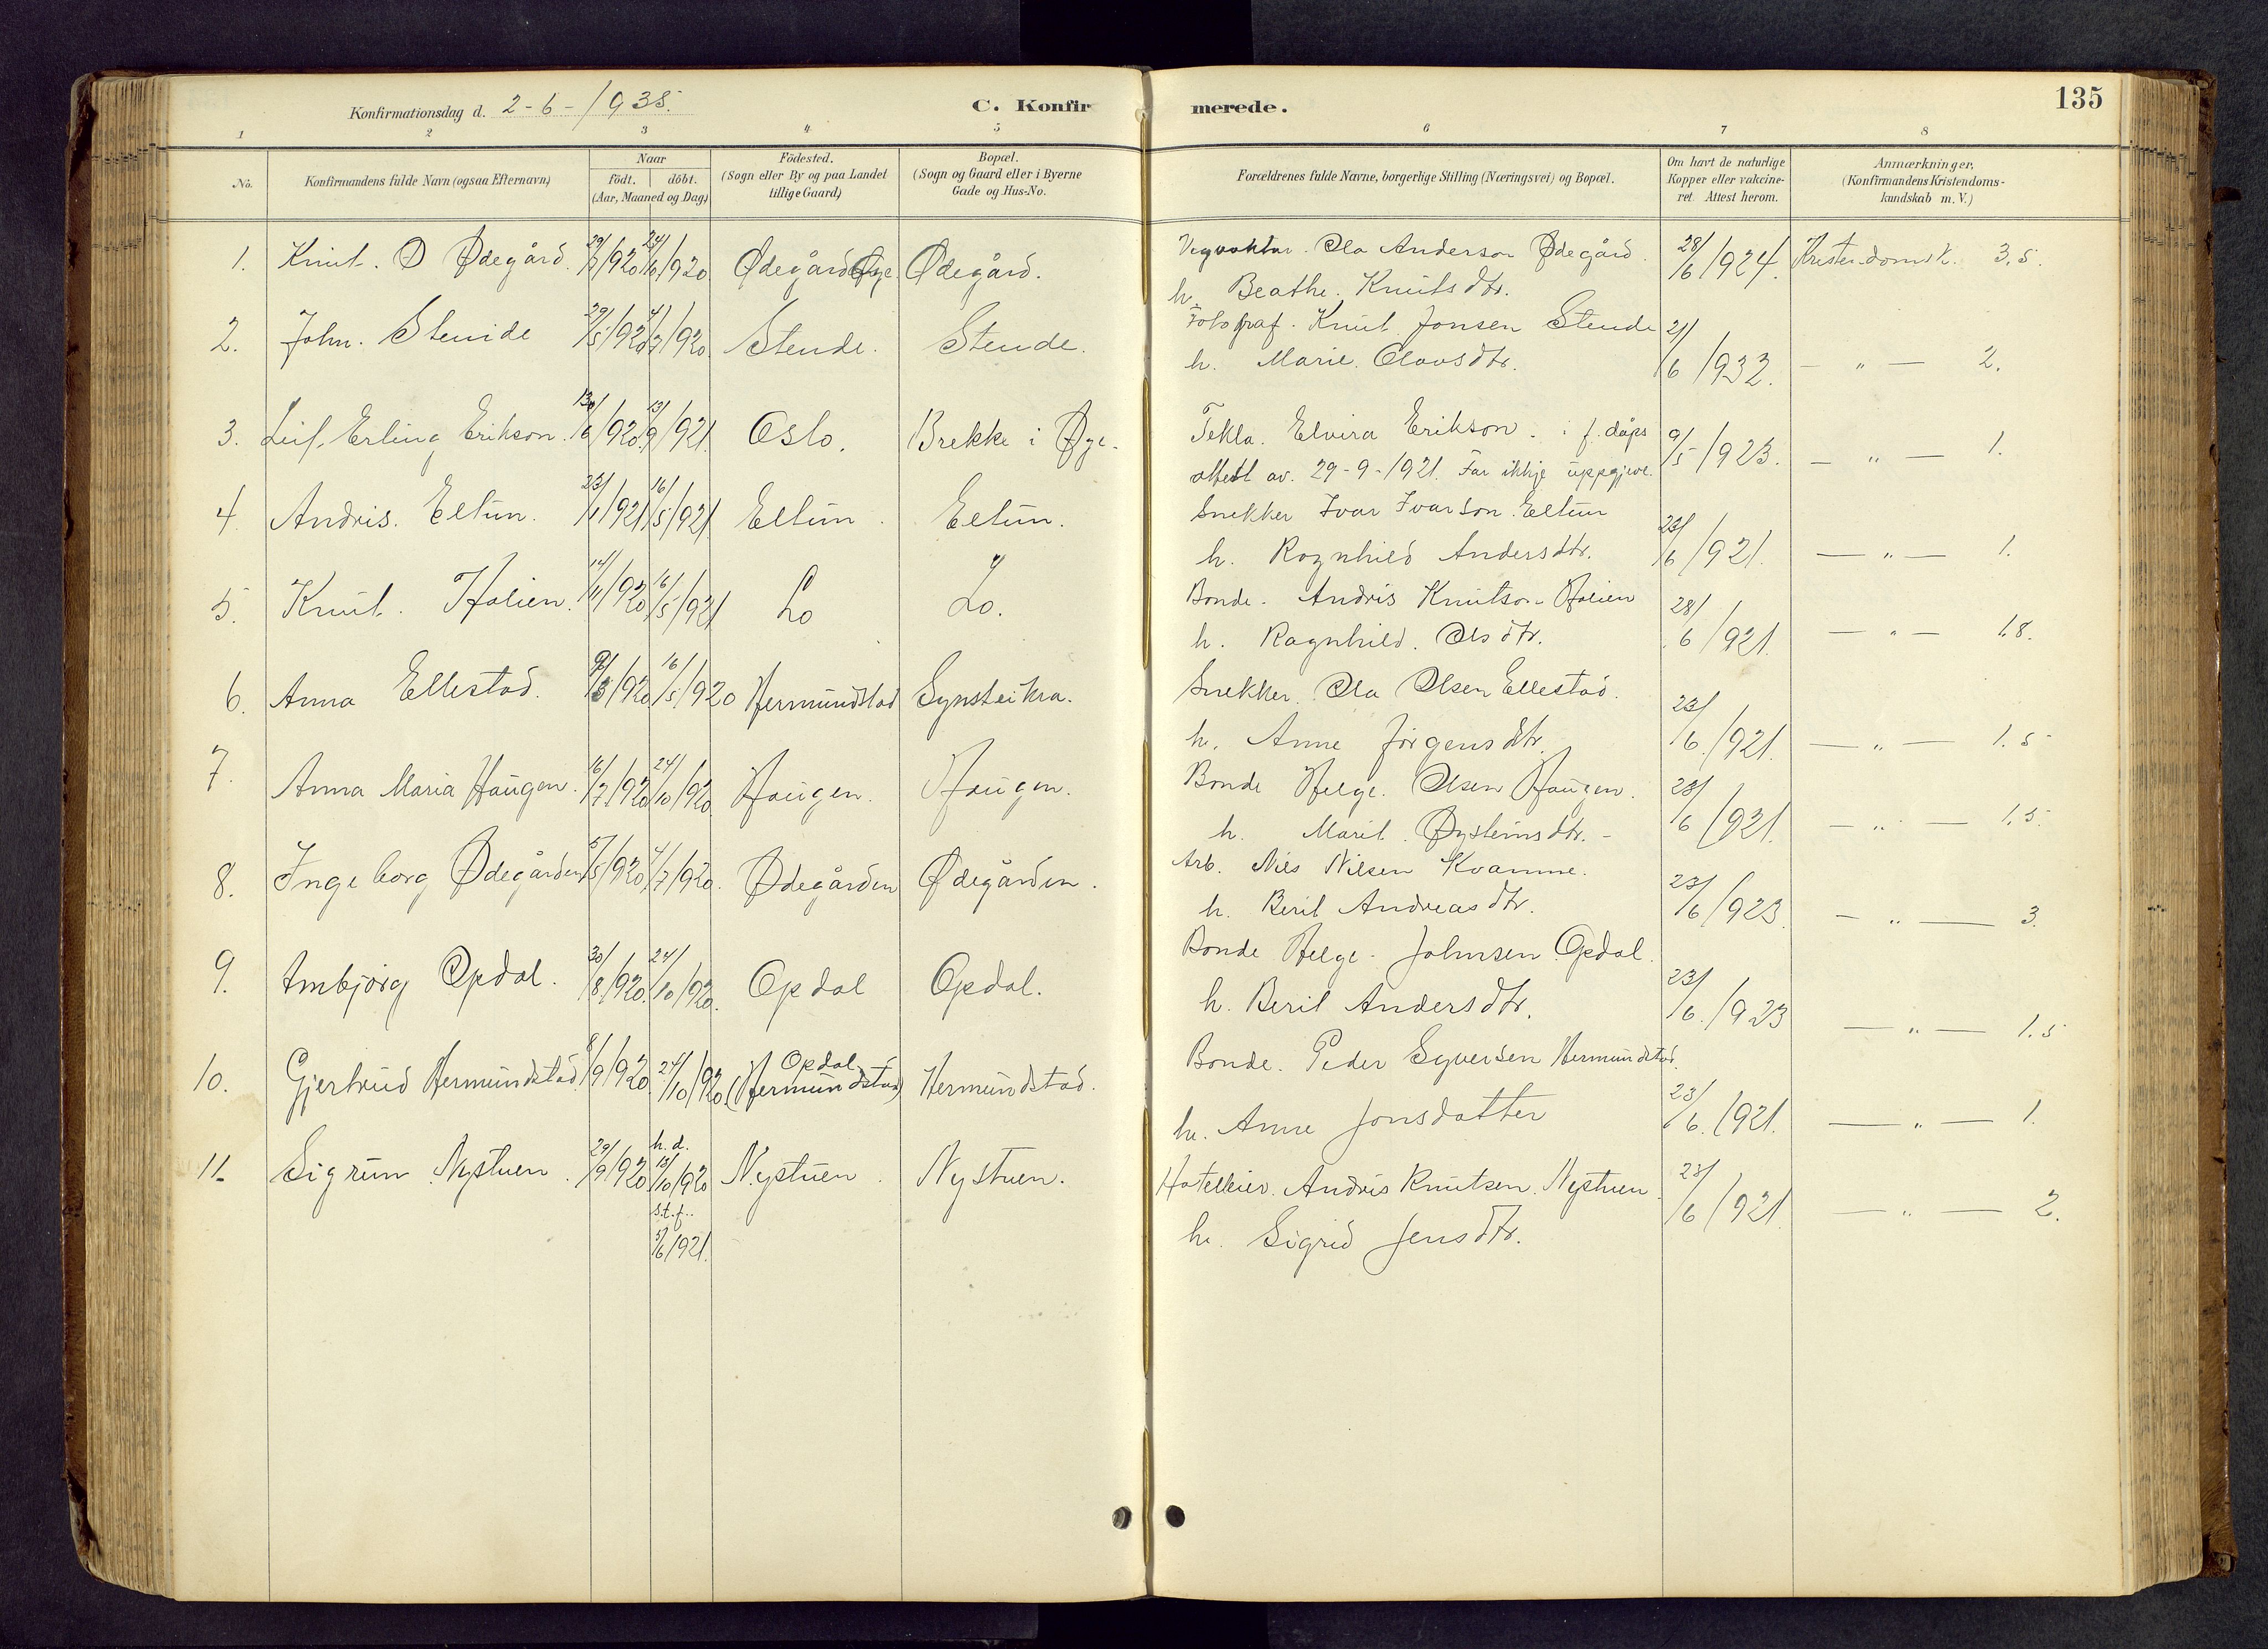 135
Konfirmationsdag d. 2-6-1935.
C. Konfirmerede.
1 2 3 4 5 6 7 8
No.
Konfirmandens fulde Navn (ogsaa Efternavn)
Naar
födt. döbt.
(Aar, Maaned og Dag)
Födested.
(Sogn eller By og paa Landet
tillige Gaard)
Bopæl.
(Sogn og Gaard eller i Byerne
Gade og Hus-No.
Forældrenes fulde Navne, borgerlige Stilling (Næringsvei) og Bopæl.
Om havt de naturlige
Kopper eller vakcine-
ret. Attest herom.
Anmærkninger,
(Konfirmandens Kristendoms-
kundskab m. V.)
1. Knut. O Ødegård. 29/7/920 24/10/920. Ødegård Øye Ødegård. Vegvaktar. Ola Anderson Ødegård. 28/6/924. Kristendomsk. 3,5.
h. Beathe. Knutsdtr.
2. John. Stende 29/5/920 4/7/920. Stende. Stende. Fotograf. Knut Jonsen Stende 21/6/932. — „ — 2.
h. Marie. Olavsdtr.
3. Leif. Erling Erikson. /6/920. 13/9/921. Oslo. Brekke i Øye. Tekla. Elvira Erikson. i f. dåps 9/5/923. — „ — 1.
attest av. 29-9-1921. Far ikkje uppgjeve.
4. Andris. Eltun. 23/1/921 16/5/921 Eltun. Eltun. Snekker Ivar Ivarson Eltun 23/6/921. — „ — 1.
h. Ragnhild Andersdtr.
5. Knut. Holien. 14/11/920 16/5/921 Lo Lo. Bonde. Andris Knutson Holien 28/6/921. — „ — 1.8.
h. Ragnhild. Olsdtr.
6. Anna Ellestad. /920 16/5/920 Hermundstad Synsteikra. Snekker. Ola Olsen Ellestad. 23/6/921. — „ — 1.5
h. Anne Jörgensdtr.
7. Anna Maria Haugen. 16/7/920 24/10/920 Haugen. Haugen. Bonde Helge. Olsen Haugen. 28/6/921. — „ — 1.5.
h. Marit. Øysteinsdtr. -
8. Ingeborg Ødegården 5/5/920 4/7/920. Ødegården Ødegården. Arb. Nils Nilsen Kvamme. 23/6/923 — „ — 3.
h. Berit Andreasdtr.
9. Ambjörg Opdal. 30/8/920. 24/10/920. Opdal Opdal. Bonde Helge. Johnsen Opdal. 23/6/923 — „ — 1.5
h. Berit Andersdtr.
10. Gjertrud Hermundstad 8/9/920. 24/10/920. Opdal (Hermundstad) Hermundstad. Bonde. Peder Syversen Hermundstad. 23/6/921. — „ — 1.
h. Anne Jonsdatter
11. Sigrun Nystuen. 29/9/920 h.d. 13/10/920 s.t.f. 5/6/921. Nystuen. Nystuen. Hotelleier. Andris Knutsen. Nystuen. 23/6/921. — „ — 2.
h. Sigrid Jensdtr.